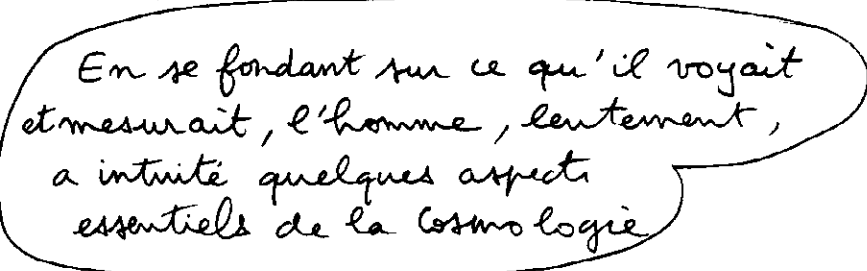 En se fondant sur ce qu'il voyait
et mesurait, l'homme, lentement,
a intuité quelques aspects
essentiels de la Cosmologie